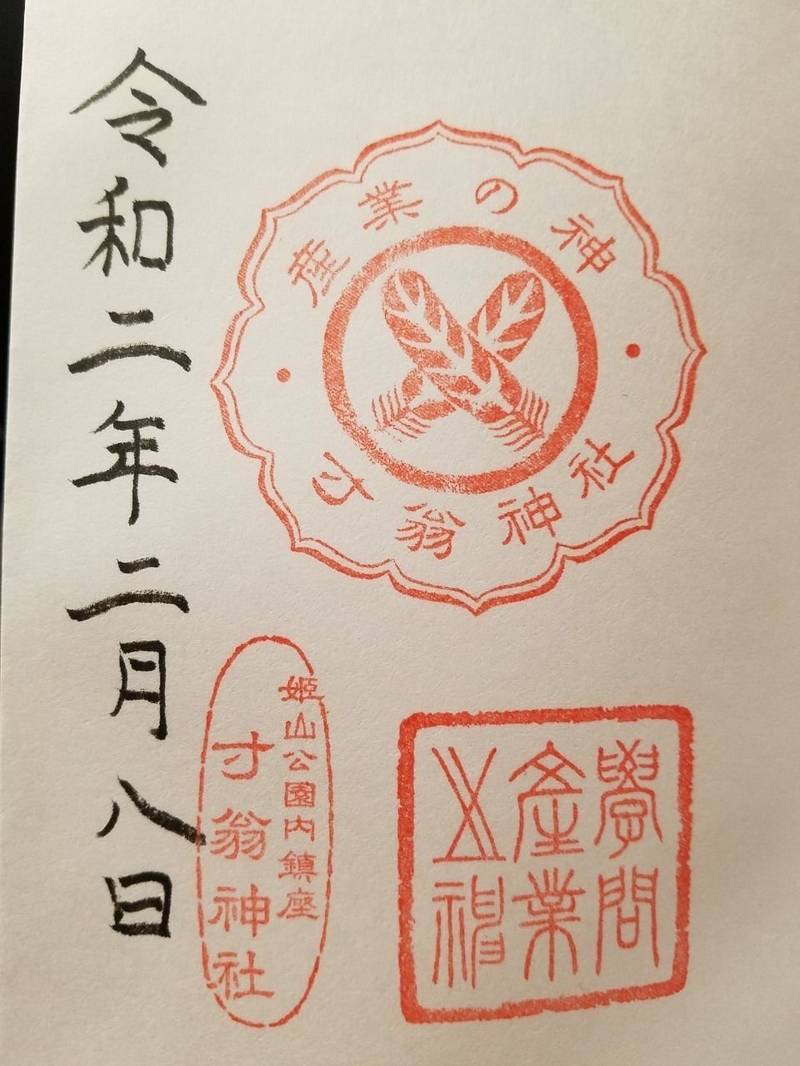 産業の神
寸翁神社
學問
產業
之神
姫山公園内鎮座
寸翁神社
令和二年二月八日